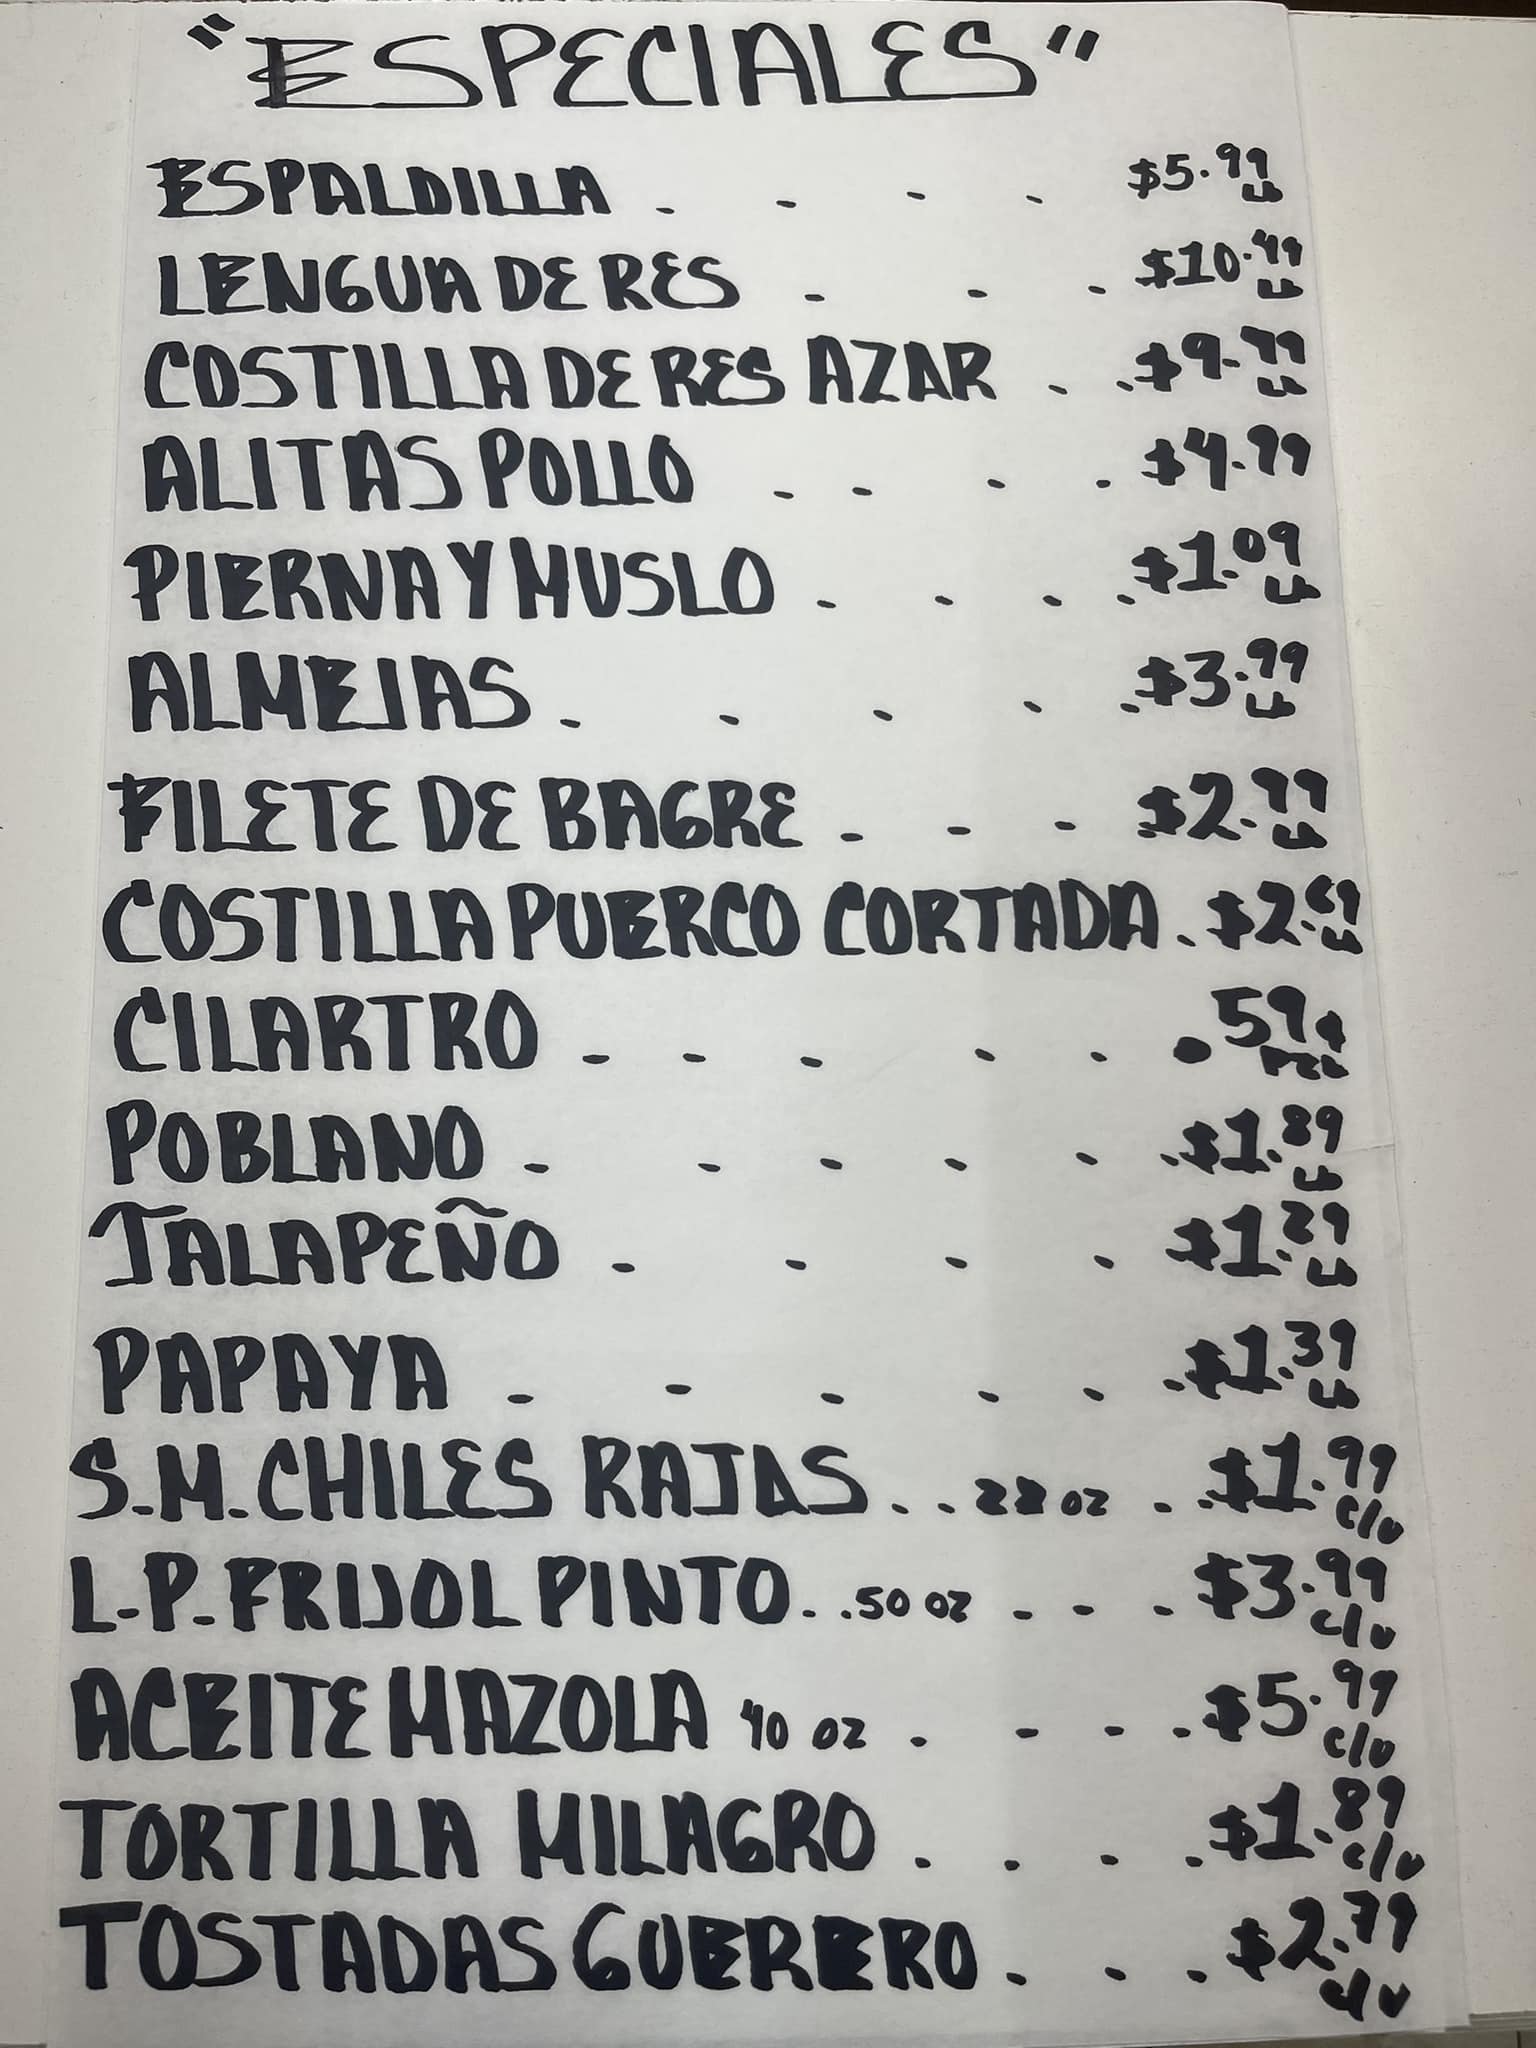 "ESPECIALES"
ESPALDILLA . - - - $5.99 LB
LENGUA DE RES - - - $10.49 LB
COSTILLA DE RES AZAR - . $9.99 LB
ALITAS POLLO - - - . $4.99
PIERNA Y MUSLO - - - . $1.09 LB
ALMEJAS . - - - . $3.99 LB
FILETE DE BAGRE - - - $2.99 LB
COSTILLA PUERCO CORTADA . $2.69 LB
CILARTRO - - - - - .59¢
POBLANO - - - - - . $1.89 LB
JALAPEÑO - - - - $1.29 LB
PAPAYA - - - - - . $1.39 LB
S.M. CHILES RAJAS . . - 28 OZ - . $1.99 C/U
L.P. FRIJOL PINTO . . 50 OZ - - - $3.99 C/U
ACEITE MAZOLA 40 OZ . - - . $5.99 C/U
TORTILLA MILAGRO . . . . $1.89 C/U
TOSTADAS GUERERO . - - $2.79 C/U